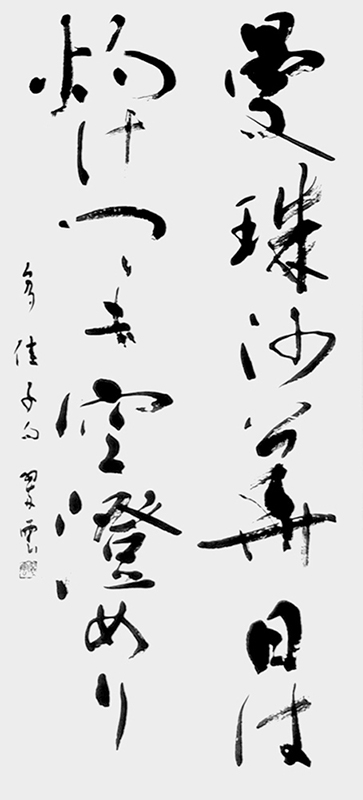 曼珠沙華日は
灼けつゝも空澄めり
多佳子句 翠雲